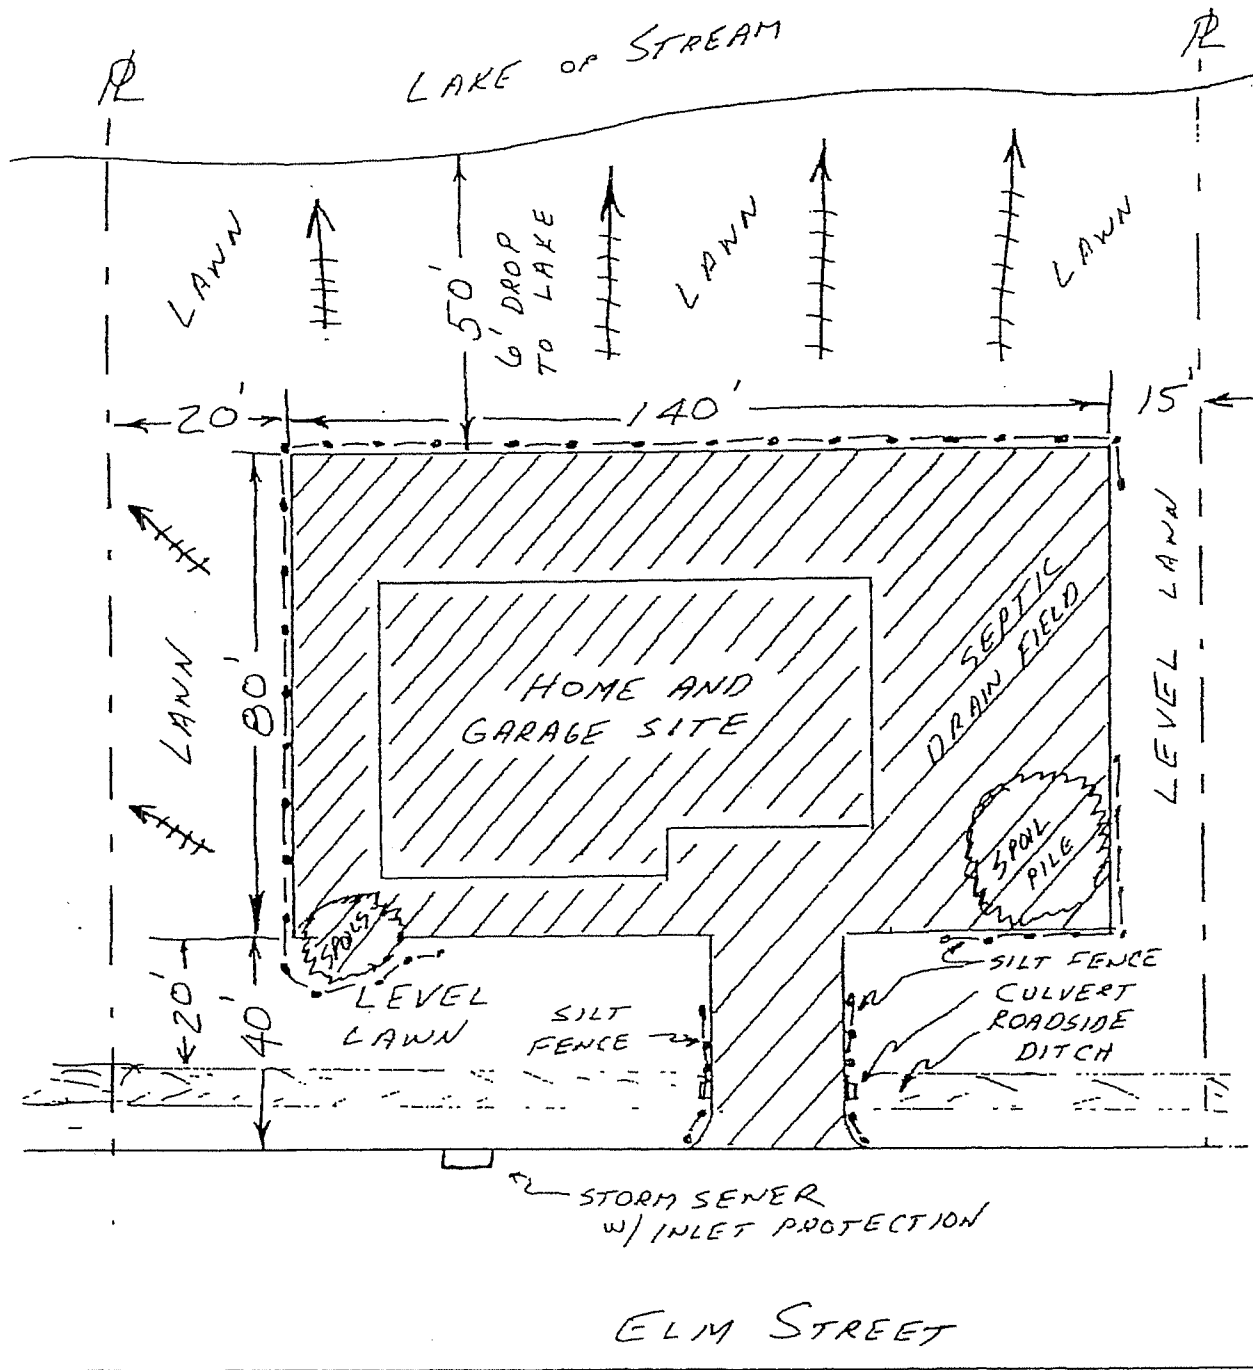 LAKE OR STREAM
PL
PL
LAWN
50'
6' DROP
TO LAKE
LAWN
LAWN
20'
140'
15'
LAWN
80'
HOME AND
GARAGE SITE
SEPTIC
DRAIN FIELD
LEVEL LAWN
SPOIL
PILE
SPOILS
20'
40'
LEVEL
LAWN
SILT
FENCE
SILT FENCE
CULVERT
ROADSIDE
DITCH
STORM SEWER
W/ INLET PROTECTION
ELM STREET